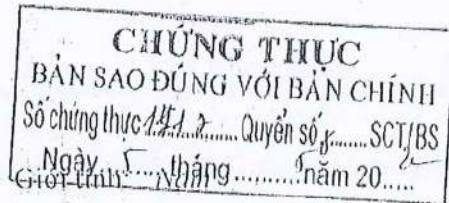 CHỨNG THỰC
BẢN SAO ĐÚNG VỚI BẢN CHÍNH
Số chứng thực ............ Quyển số ........ SCT/BS
Ngày 5 tháng .......... năm 20.....
Giới tính: Nam